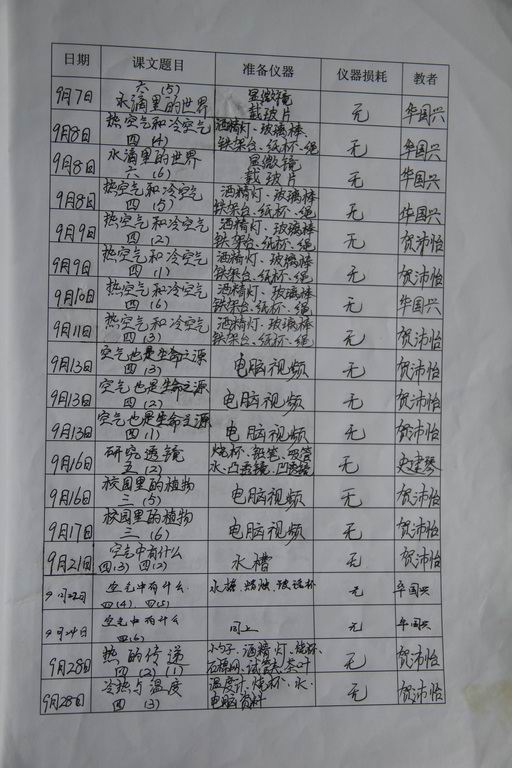 日期 课文题目 准备仪器 仪器损耗 教者
9月7日 六(5) 水滴里的世界 显微镜 载玻片 无 华国兴
9月8日 热空气和冷空气 四(4) 酒精灯、玻璃棒、铁架台、纸杯、绳 无 华国兴
9月8日 水滴里的世界 六(6) 显微镜 载玻片 无 华国兴
9月8日 热空气和冷空气 四(5) 酒精灯、玻璃棒 铁架台、纸杯、绳 无 华国兴
9月9日 热空气和冷空气 四(2) 酒精灯、玻璃棒 铁架台、纸杯、绳 无 贺沛怡
9月9日 热空气和冷空气 四(1) 酒精灯、玻璃棒 铁架台、纸杯、绳 无 贺沛怡
9月10日 热空气和冷空气 四(6) 酒精灯、玻璃棒 铁架台、纸杯、绳 无 华国兴
9月11日 热空气和冷空气 四(3) 酒精灯、玻璃棒 铁架台、纸杯、绳 无 贺沛怡
9月13日 空气也是生命之源 四(3) 电脑视频 无 贺沛怡
9月13日 空气也是生命之源 四(2) 电脑视频 无 贺沛怡
9月13日 空气也是生命之源 四(1) 电脑视频 无 贺沛怡
9月16日 研究透镜 五(2) 烧杯、铅笔、吸管 水、凸透镜、凹透镜 无 史建琴
9月16日 校园里的植物 三(5) 电脑视频 无 贺沛怡
9月17日 校园里的植物 三(6) 电脑视频 无 贺沛怡
9月21日 空气中有什么 四(3) 四(2) 水槽 无 贺沛怡
9月22日 空气中有什么 四(4) 四(5) 水槽、蜡烛、玻璃杯 无 华国兴
9月24日 空气中有什么 四(6) 同上 无 华国兴
9月28日 热的传递 四(2)(1) 小勺子、酒精灯、烧杯、石棉网、试管夹、茶叶 无 贺沛怡
9月28日 冷热与温度 四(3) 温度计、烧杯、水、电脑资料 无 贺沛怡